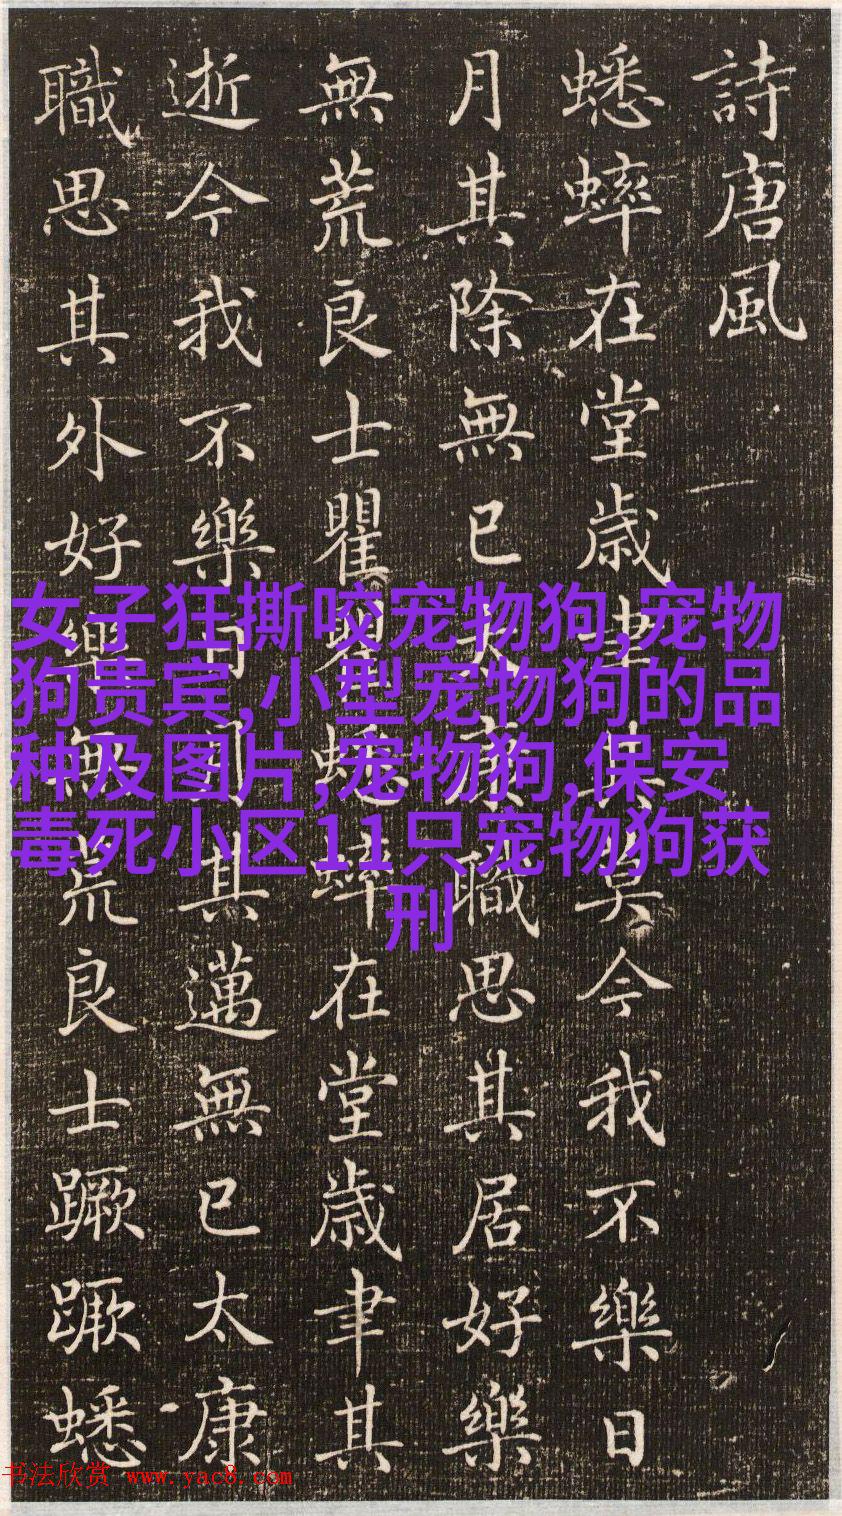 詩唐風
蟋蟀在堂歳聿其莫今我不樂日
月其除無已太康職思其居好樂
無荒良士瞿瞿蟋蟀在堂歳聿其
逝今我不樂日月其邁無已太康
職思其外好樂無荒良士蹶蹶蟋
女子狂撕咬宠物狗,宠物
狗贵宾,小型宠物狗的品
种及图片,宠物狗,保安
毒死小区11只宠物狗获
刑
书法欣赏 www.yac8.com